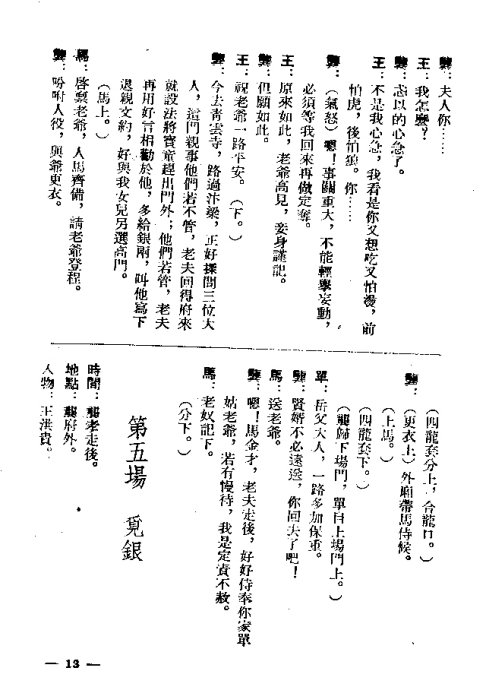 龔：夫人你……
王：我怎麽？
龔：忒以的心急了。
王：不是我心急，我看是你又想吃又怕燙，前
怕虎，後怕狼。你……
龔：（氣怒）嗯！事關重大，不能輕舉妄動，
必須等我回來再做定奪。
王：原來如此，老爺高見，妾身謹記。
龔：但願如此。
王：祝老爺一路平安。（下。）
龔：今去靑雲寺，路過汴梁，正好探問三位大
人，這門親事他們若不管，老夫回得府來
就設法將寶童趕出門外；他們若管，老夫
再用好言相勸於他，多給銀兩，叫他寫下
退親文約，好與我女兒另選高門。
（馬上。）
馬：啓禀老爺，人馬齊備，請老爺登程。
龔：吩咐人役，與爺更衣。
（四龍套分上，合龍口。）
龔：（更衣上）外廂帶馬侍候。
（上馬。）
（四龍套下。）
（龔歸下場門，單自上場門上。）
單：岳父大人，一路多加保重。
龔：賢婿不必遠送，你回去了吧！
馬：送老爺。
龔：嗯！馬金才，老夫走後，好好侍奉你家單
姑老爺，若有慢待，我是定責不赦。
馬：老奴記下。
（分下。）
第五場　覓銀
時間：龔老走後。
地點：龔府外。
人物：王洪貴。
— 13 —